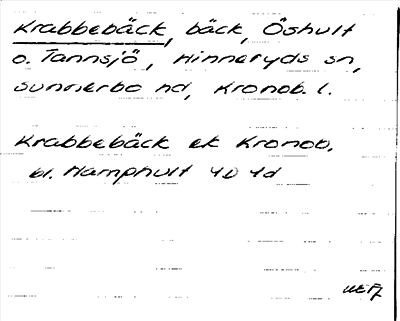 Krabbebäck, bäck, Öshult
o. Tannsjö, Hinneryds sn,
Sunnerbo hd, Kronob. l.
Krabbebäck ek Kronob.
bl. Hamphult 4D 4d